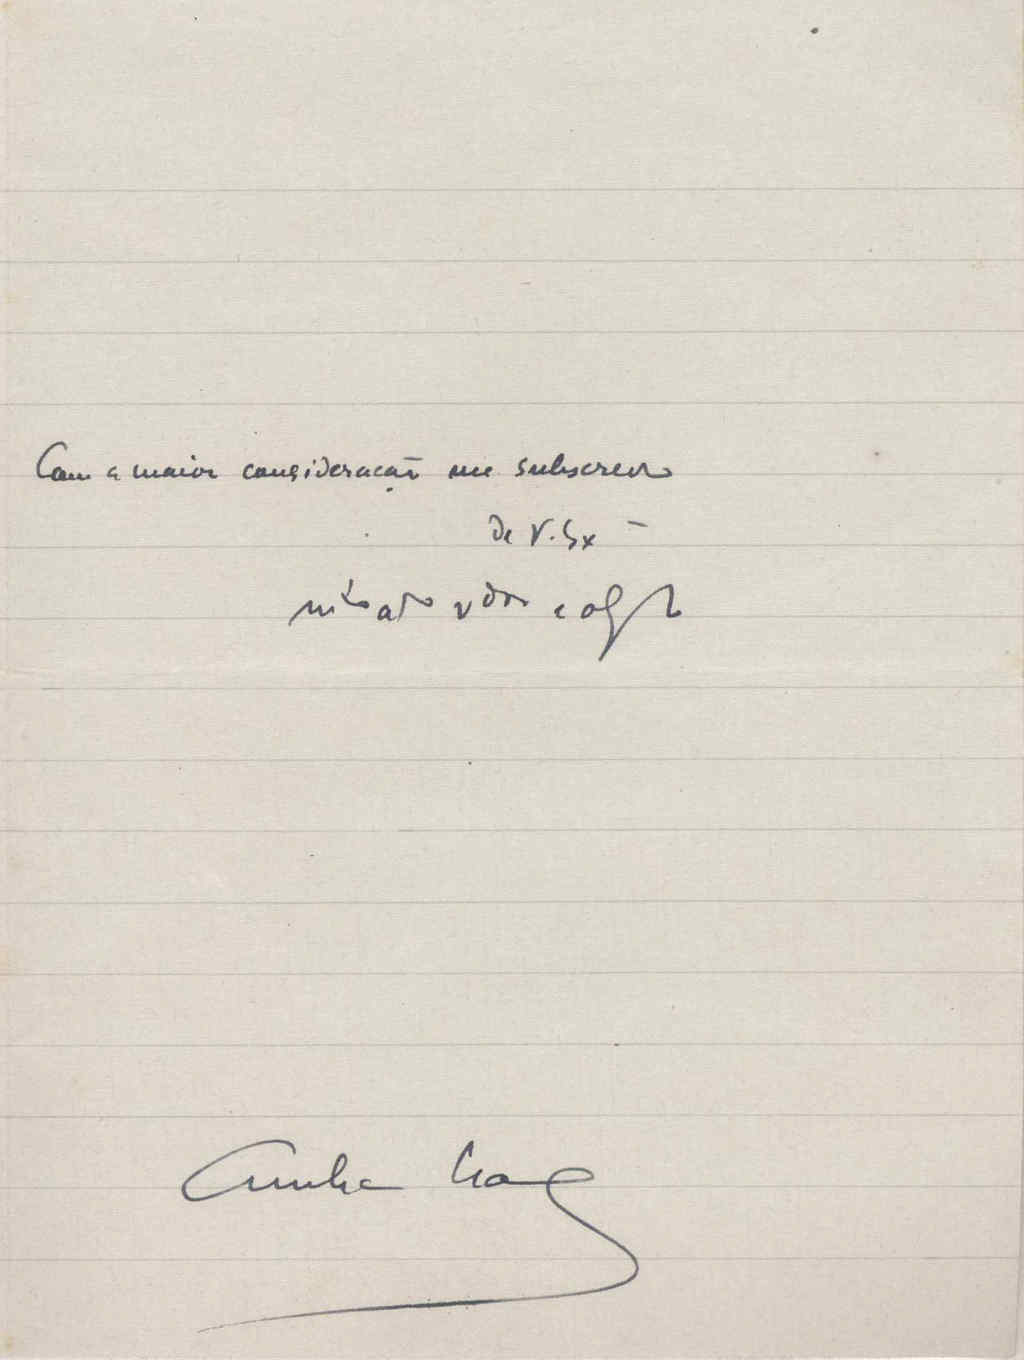 Com a maior consideração me subscrevo
De V. Ex
mto ato vdor e obgdo
Cunha